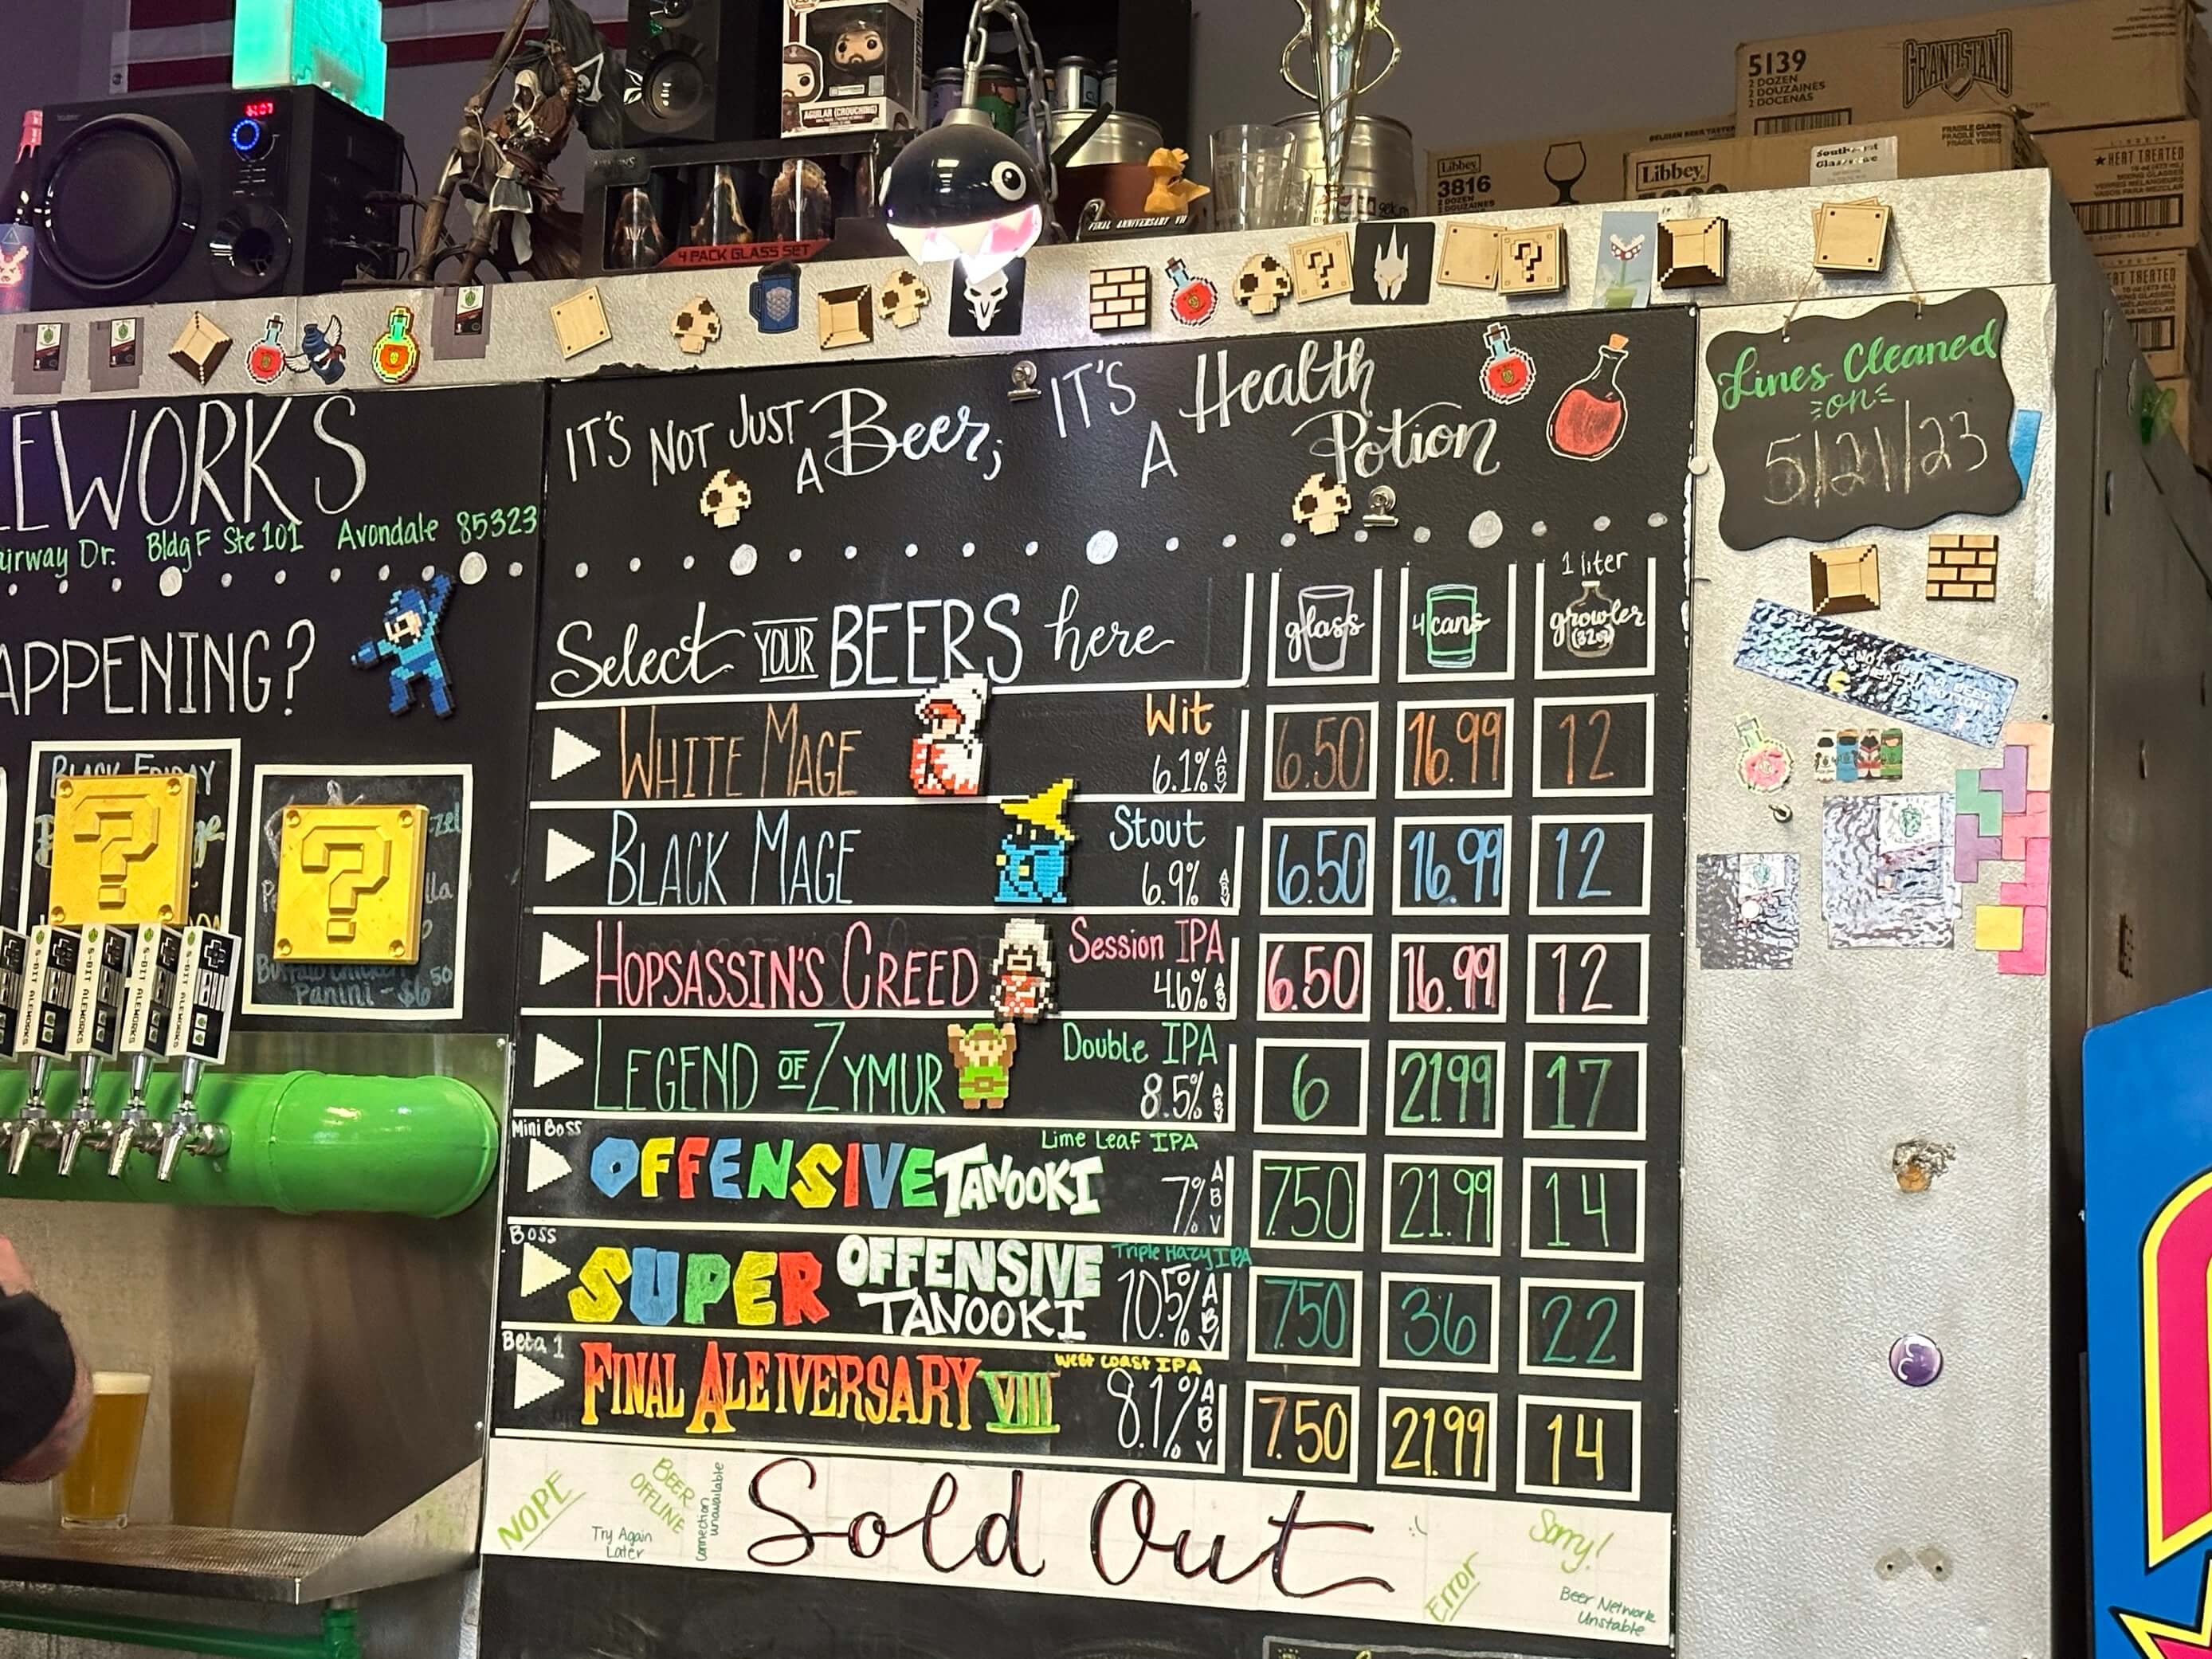 5139
2 DOZEN
2 DOUZAINES
2 DOCENAS
GRANDSTAND
AGUILAR (CROUCHING)
4 PACK GLASS SET
FINAL ANNIVERSARY VII
Libbey
3816
2 DOZEN
2 DOUZAINES
Libbey
FRAGILE GLASS
FRAGILE VERRE
HEAT TREATED
EWORKS
irway Dr. Bldg F Ste 101 Avondale 85323
APPENING?
BLACK FRIDAY
Buffalo Chicken
Panini - $6.50
8-BIT ALEWORKS
8-BIT ALEWORKS
8-BIT ALEWORKS
8-BIT ALEWORKS
IT'S NOT JUST A Beer; IT'S A Health Potion
Lines Cleaned
on
5/21/23
Select YOUR BEERS here
glass
4 cans
1 liter
growler
(32oz)
WHITE MAGE Wit 6.1% ABV 6.50 16.99 12
BLACK MAGE Stout 6.9% ABV 6.50 16.99 12
HOPSASSIN'S CREED Session IPA 4.6% ABV 6.50 16.99 12
LEGEND OF ZYMUR Double IPA 8.5% ABV 6 2199 17
Mini Boss
OFFENSIVE TANOOKI Lime Leaf IPA 7% ABV 750 21.99 14
Boss
SUPER OFFENSIVE TANOOKI Triple Hazy IPA 10.5% ABV 750 36 22
Beta 1
FINAL ALEIVERSARY VIII West Coast IPA 8.1% ABV 7.50 21.99 14
NOPE
Try Again
Later
BEER
OFFLINE
Connection
unavailable
Sold Out
:(
Error
Sorry!
Beer Network
Unstable